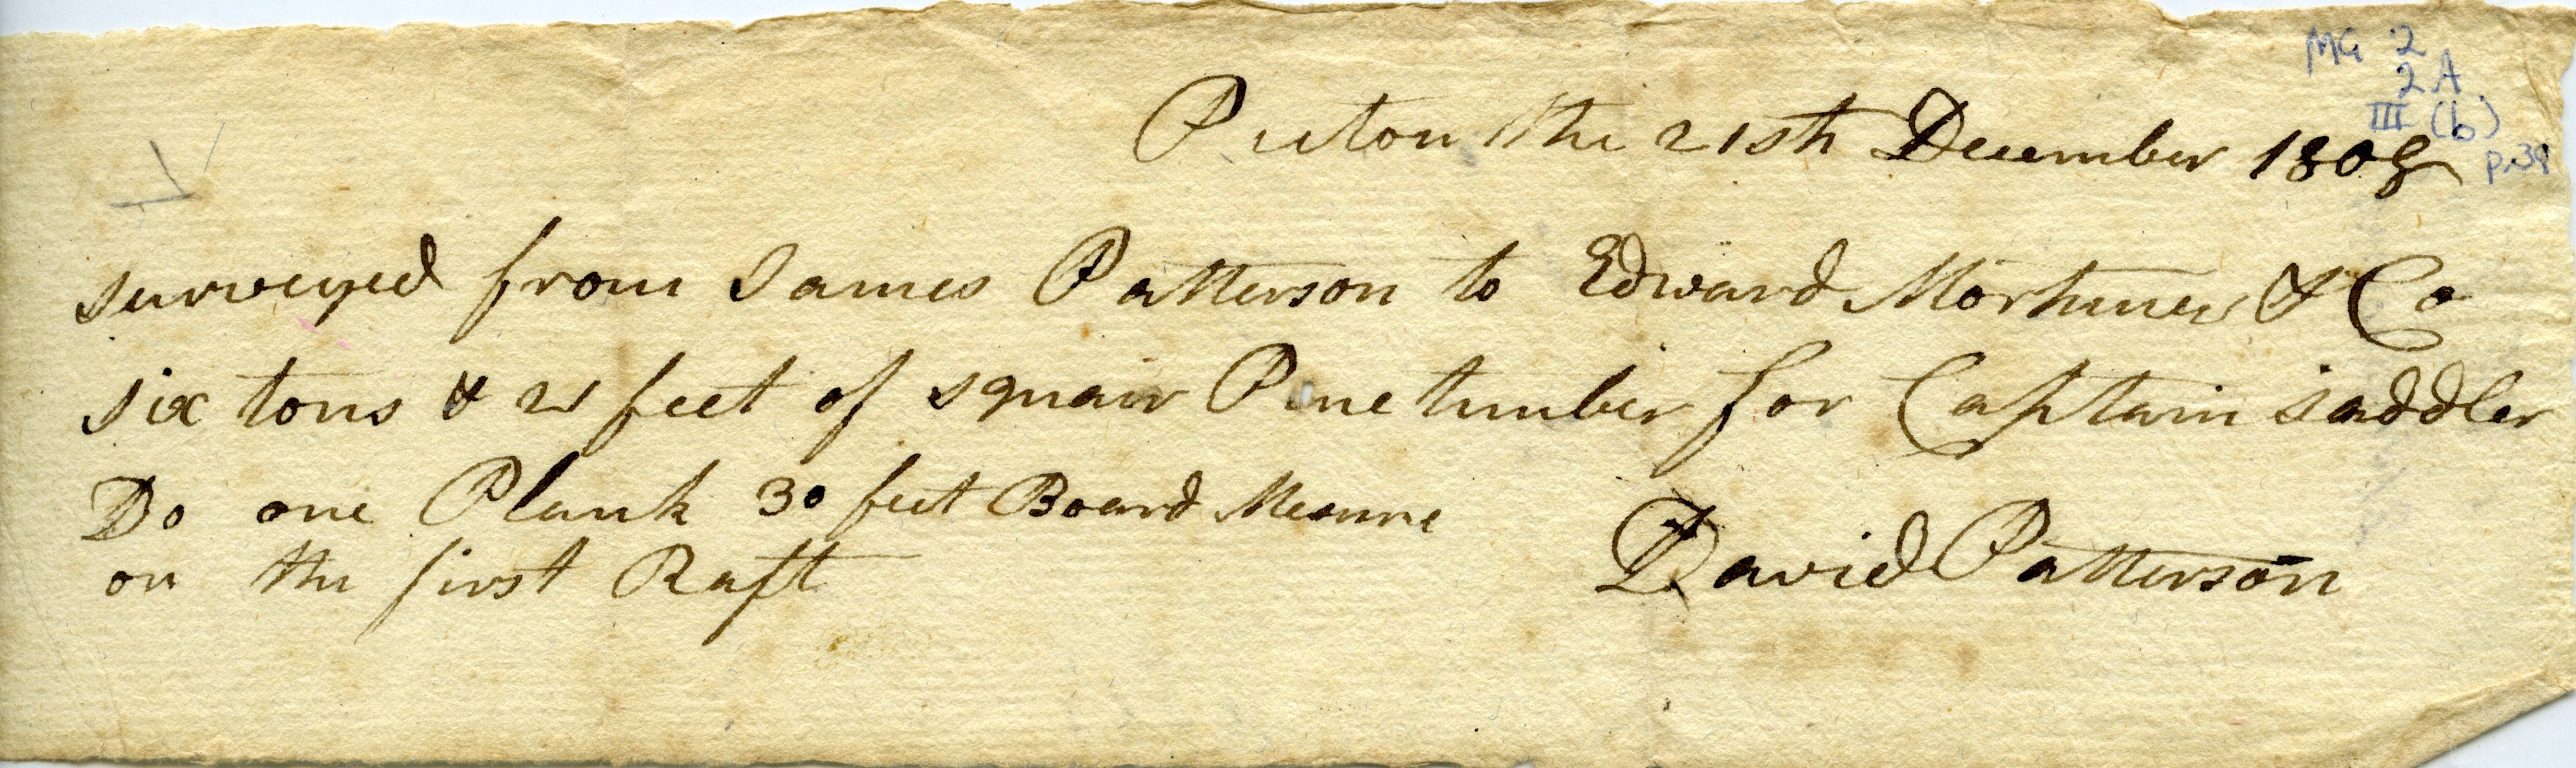 MG 2
2A
III (b)
p.39
Picton the 21sth December 1808
surveyed from James Patterson to Edward Mortimer & Co
six tons & 21 feet of squair Pine timber for Captain saddler
Do one Plank 30 feet Board Mesure
on the first Raft
David Patterson